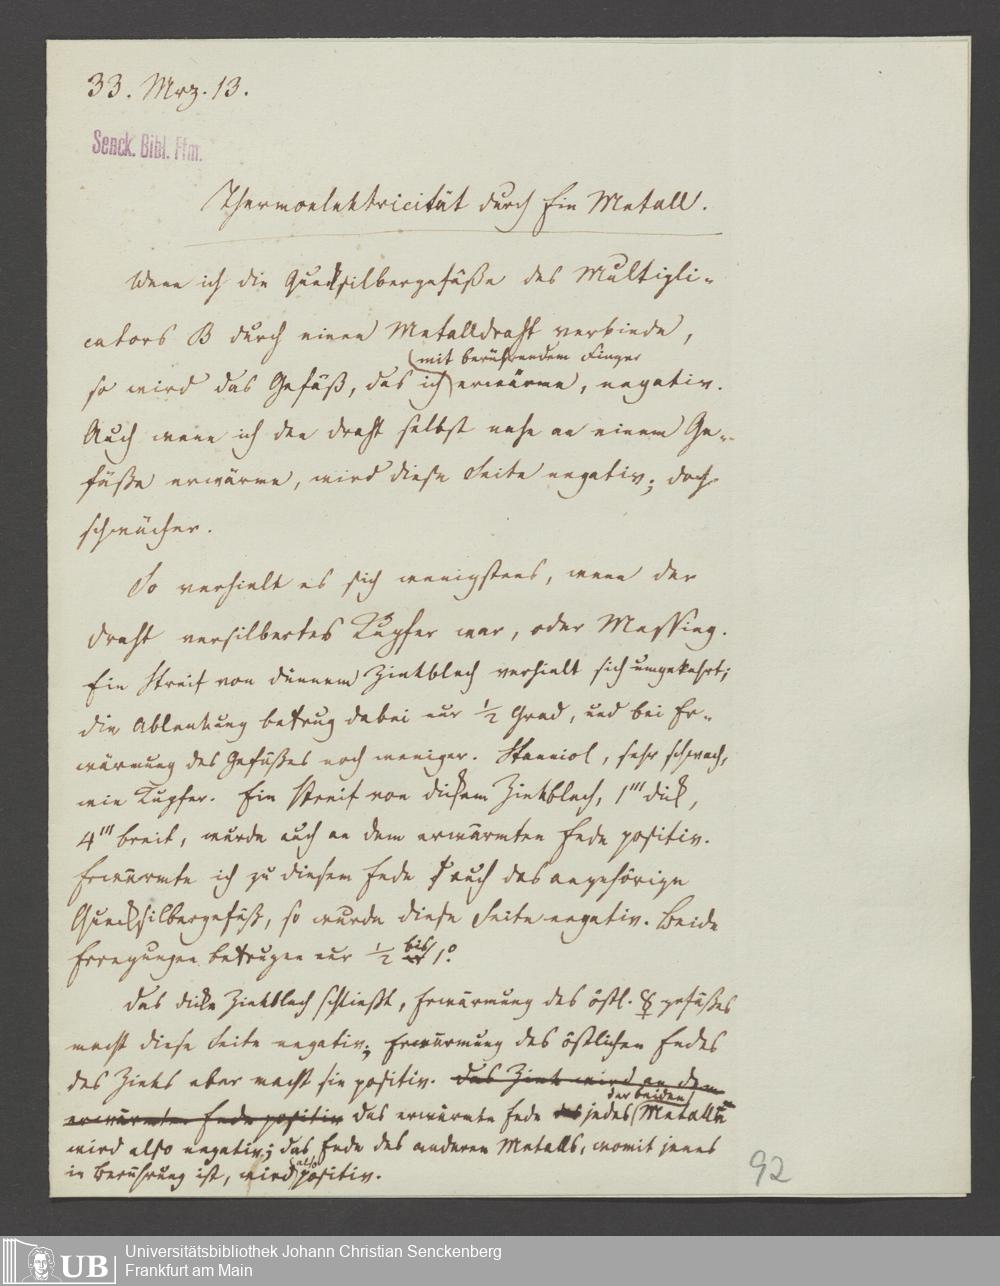 33. Mrz. 13.
Senck. Bibl. Ffm.
Thermoelektricität durch Ein Metall.
Wenn ich die Quecksilbergefäße des Multipli-
cators B durch einen Metalldraht verbinde,
mit berührendem Finger
so wird das Gefäß, das ich erwärme, negativ.
Auch wenn ich den Draht selbst nahe an einem Ge-
fäße erwärme, wird diese Seite negativ; doch
schwächer.
So verhielt es sich wenigstens, wenn der
Draht versilbertes Kupfer war, oder Messing.
Ein Streif von dünnem Zinkblech verhielt sich umgekehrt;
die Ablenkung betrug dabei nur 1/2 Grad, und bei Er-
wärmung des Gefäßes noch weniger. Stanniol, sehr schwach,
wie Kupfer. Ein Streif von dickem Zinkblech, 1''' dick,
4''' breit, wurde auch an dem erwärmten Ende positiv.
Erwärmte ich zu diesem Ende auch das angehörige
Quecksilbergefäß, so wurde diese Seite negativ. Beide
Erregungen betrugen nur 1/2 bis 1°.
Das dicke Zinkblech schließt, Erwärmung des östl. ☿ gefäßes
macht diese Seite negativ; Erwärmung des östlichen Endes
des Zinks aber macht sie positiv. Das Zink wird an dem
der beiden
erwärmten Ende positiv das erwärmte Ende des jedes Metalls
wird also negativ; das Ende des anderen Metalls, womit jenes
also
in Berührung ist, wird positiv.
92
UB
Universitätsbibliothek Johann Christian Senckenberg
Frankfurt am Main